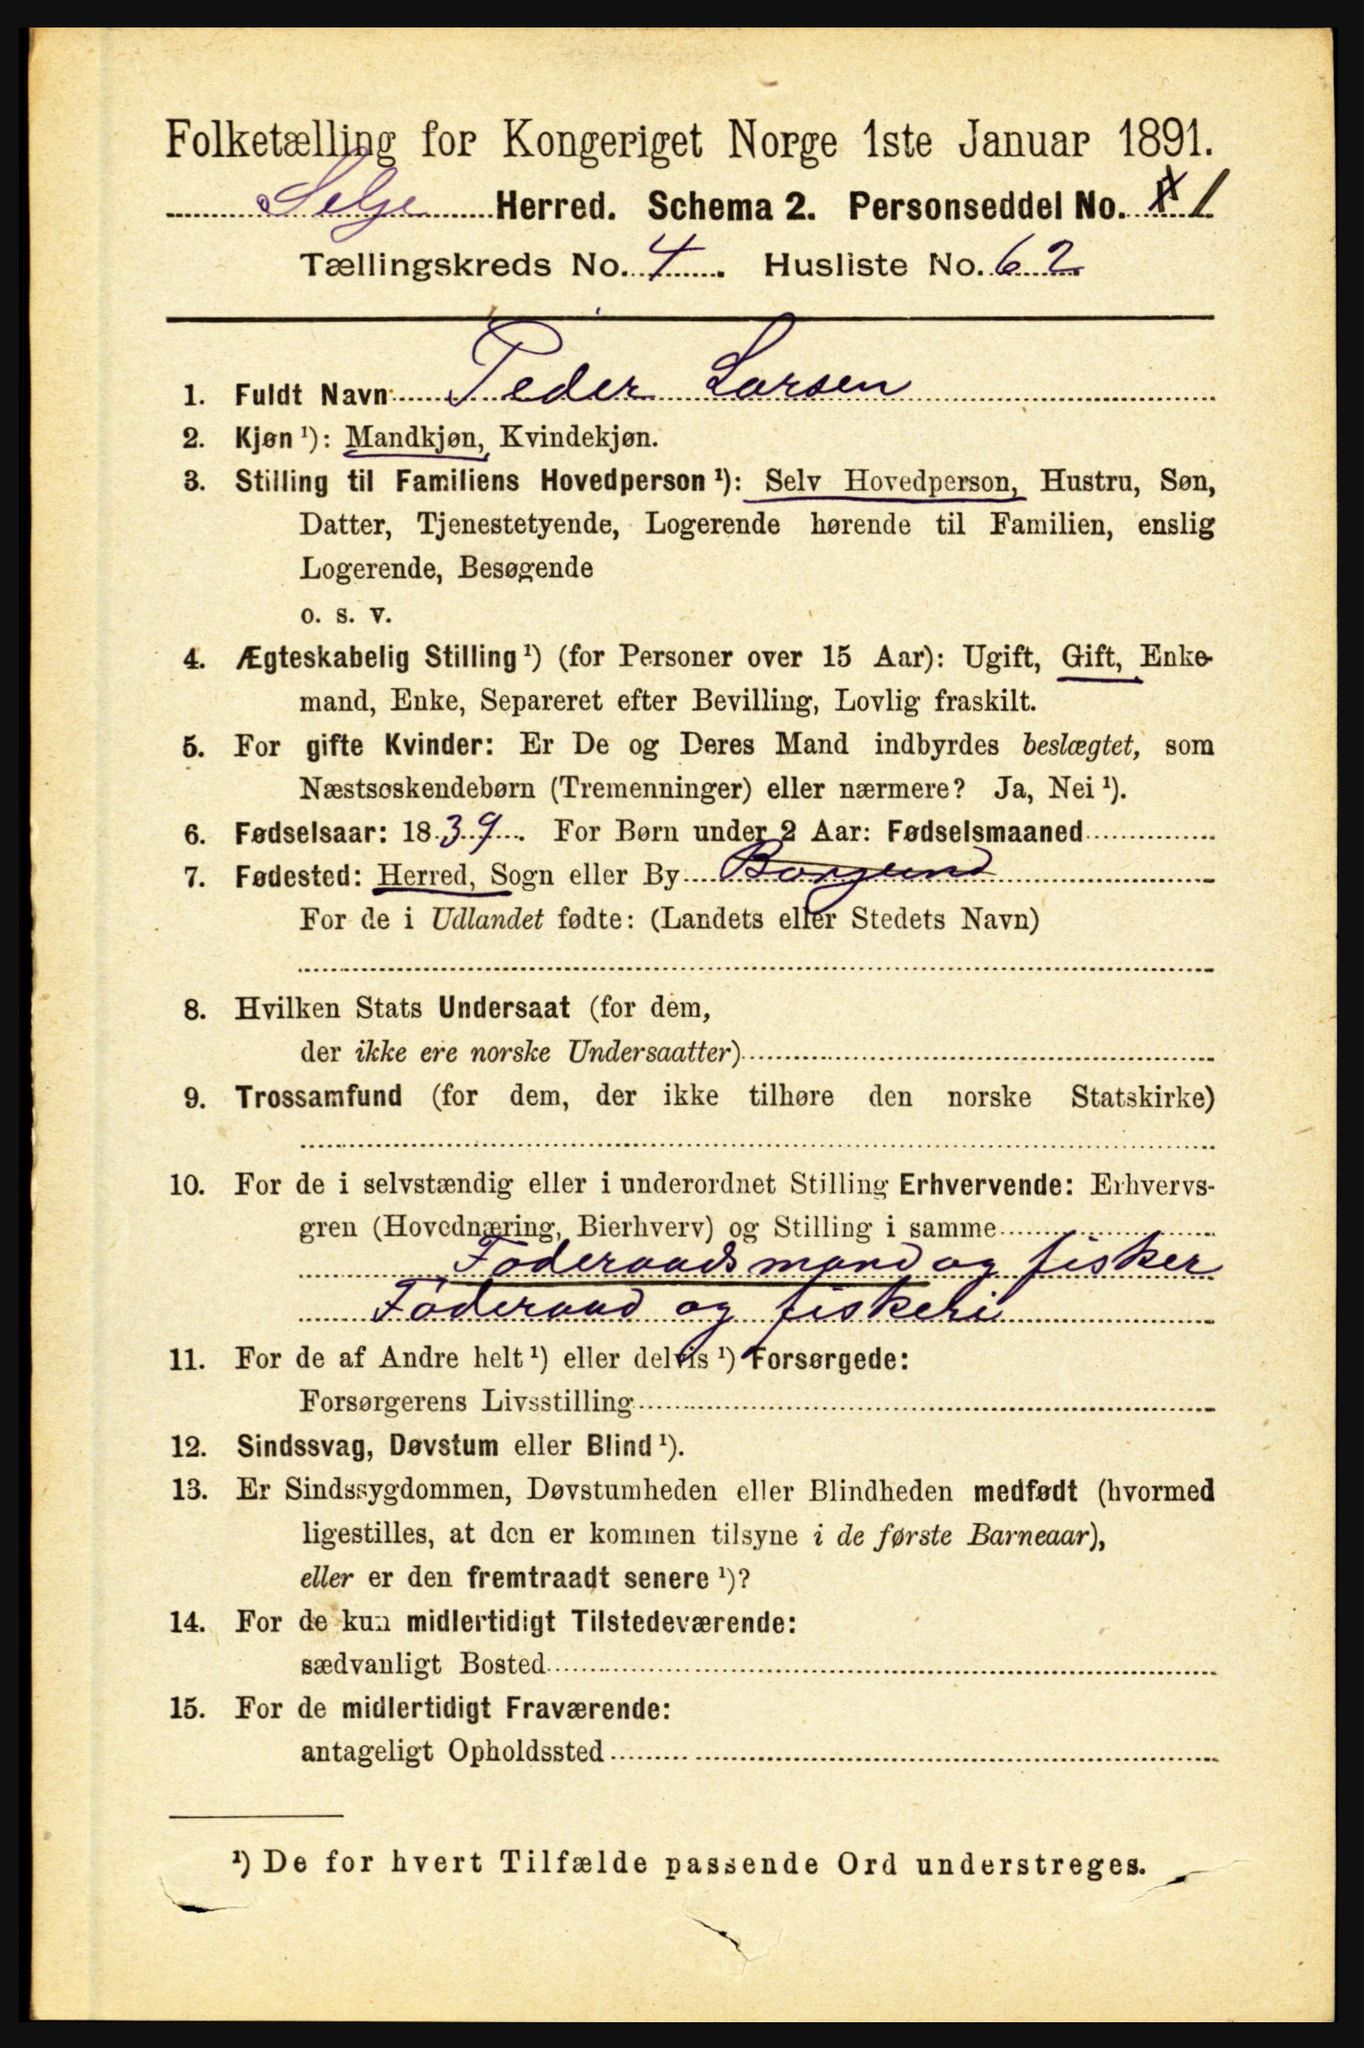 Folketælling for Kongeriget Norge 1ste Januar 1891.
Selje Herred. Schema 2. Personseddel No. 1
Tællingskreds No. 4. Husliste No. 62
1. Fuldt Navn Peder Larsen
2. Kjøn ¹): Mandkjøn, Kvindekjøn.
3. Stilling til Familiens Hovedperson ¹): Selv Hovedperson, Hustru, Søn,
Datter, Tjenestetyende, Logerende hørende til Familien, enslig
Logerende, Besøgende
o. s. v.
4. Ægteskabelig Stilling ¹) (for Personer over 15 Aar): Ugift, Gift, Enke-
mand, Enke, Separeret efter Bevilling, Lovlig fraskilt.
5. For gifte Kvinder: Er De og Deres Mand indbyrdes beslægtet, som
Næstsøskendebørn (Tremenninger) eller nærmere? Ja, Nei ¹).
6. Fødselsaar: 1839. For Børn under 2 Aar: Fødselsmaaned
7. Fødested: Herred, Sogn eller By Borgund
For de i Udlandet fødte: (Landets eller Stedets Navn)
8. Hvilken Stats Undersaat (for dem,
der ikke ere norske Undersaatter)
9. Trossamfund (for dem, der ikke tilhøre den norske Statskirke)
10. For de i selvstændig eller i underordnet Stilling Erhvervende: Erhvervs-
gren (Hovednæring, Bierhverv) og Stilling i samme
Føderaadsmand og fisker
Føderaad og fiskeri
11. For de af Andre helt ¹) eller delvis ¹) Forsørgede:
Forsørgerens Livsstilling
12. Sindssvag, Døvstum eller Blind ¹).
13. Er Sindssygdommen, Døvstumheden eller Blindheden medfødt (hvormed
ligestilles, at den er kommen tilsyne i de første Barneaar),
eller er den fremtraadt senere ¹)?
14. For de kun midlertidigt Tilstedeværende:
sædvanligt Bosted
15. For de midlertidigt Fraværende:
antageligt Opholdssted
¹) De for hvert Tilfælde passende Ord understreges.